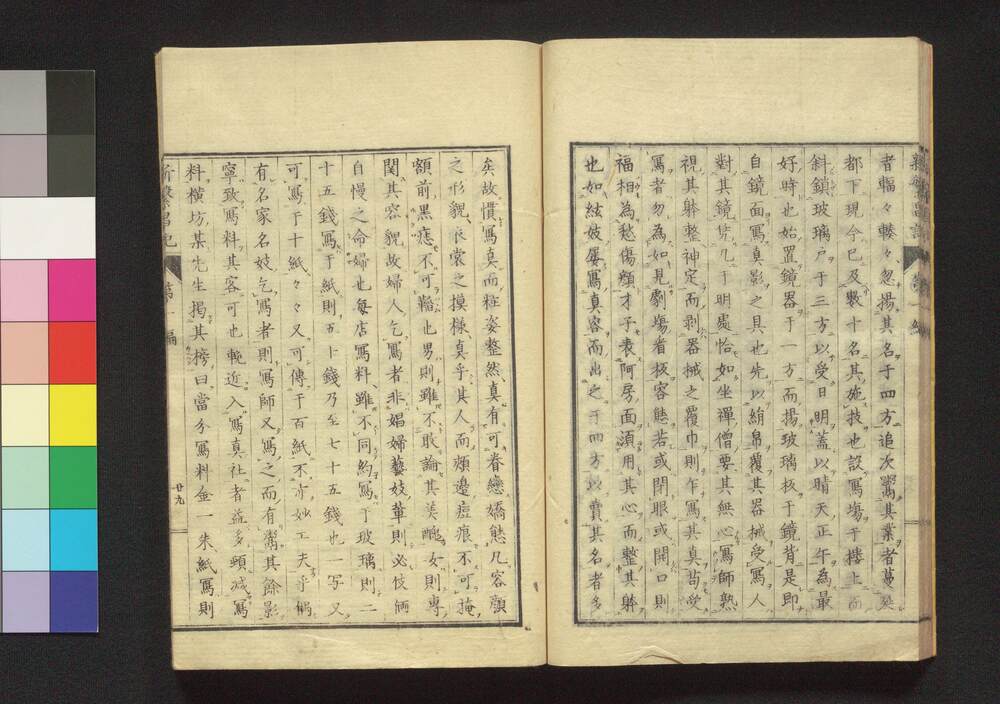 者輻々轃々忽揚其名于四方追次鬻其業者蔓延
都下現今已及數十名其施技也設寫塲于樓上而
斜鎖玻璃戸于三方以受日明蓋以晴天正午為最
好時也始置鏡器于一方而揚玻璃板于鏡背是即
自鏡面寫真影之具也先以絹帛覆其器械受寫人
對其鏡凭几于明處恰如坐禪僧要其無心寫師熟
視其躰整神定而剥器械之覆巾則乍寫其真苟受
寫者勿為如見劇塲看板容態若或閉眼或開口則
福相為愁傷顏才子表阿房面須用其心而整其躰
也如絃妓屡寫真容而出之于四方以賣其名者多
矣故慣寫真而粧姿整然真有可眷戀嬌態凡容顏
之形貌衣裳之摸様真乎其人而頰邊痘痕不可掩
額前黒痣不可韜也男則雖不敢論其美醜女則専
関其容貌故婦人乞寫者非娼婦藝妓輩則必伎倆
自慢之命婦也毎店寫料雖不同約寫于玻璃則二
十五錢寫于紙則五十錢乃至七十五錢也一写又
可寫于十紙々々又可傳于百紙不亦妙工夫乎稱
有名家名妓乞寫者則寫師又寫之而有鬻其餘影
寧致寫料其客可也輓近入寫真社者益多頓减寫
料横坊某先生掲其榜曰當分寫料金一朱紙寫則
新繁昌記 第一編 廿九